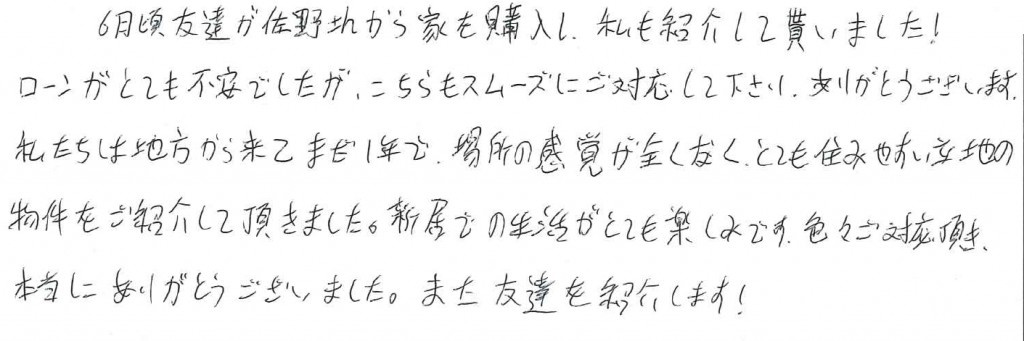 6月頃友達が佐野さんから家を購入し、私も紹介して貰いました!
ローンがとても不安でしたが、こちらもスムーズにご対応して下さり、ありがとうございます。
私たちは地方から来てまだ1年で、場所の感覚が全くなく、とても住みやすい立地の
物件をご紹介して頂きました。新居での生活がとても楽しみです。色々ご対応頂き、
本当にありがとうございました。また友達を紹介します!